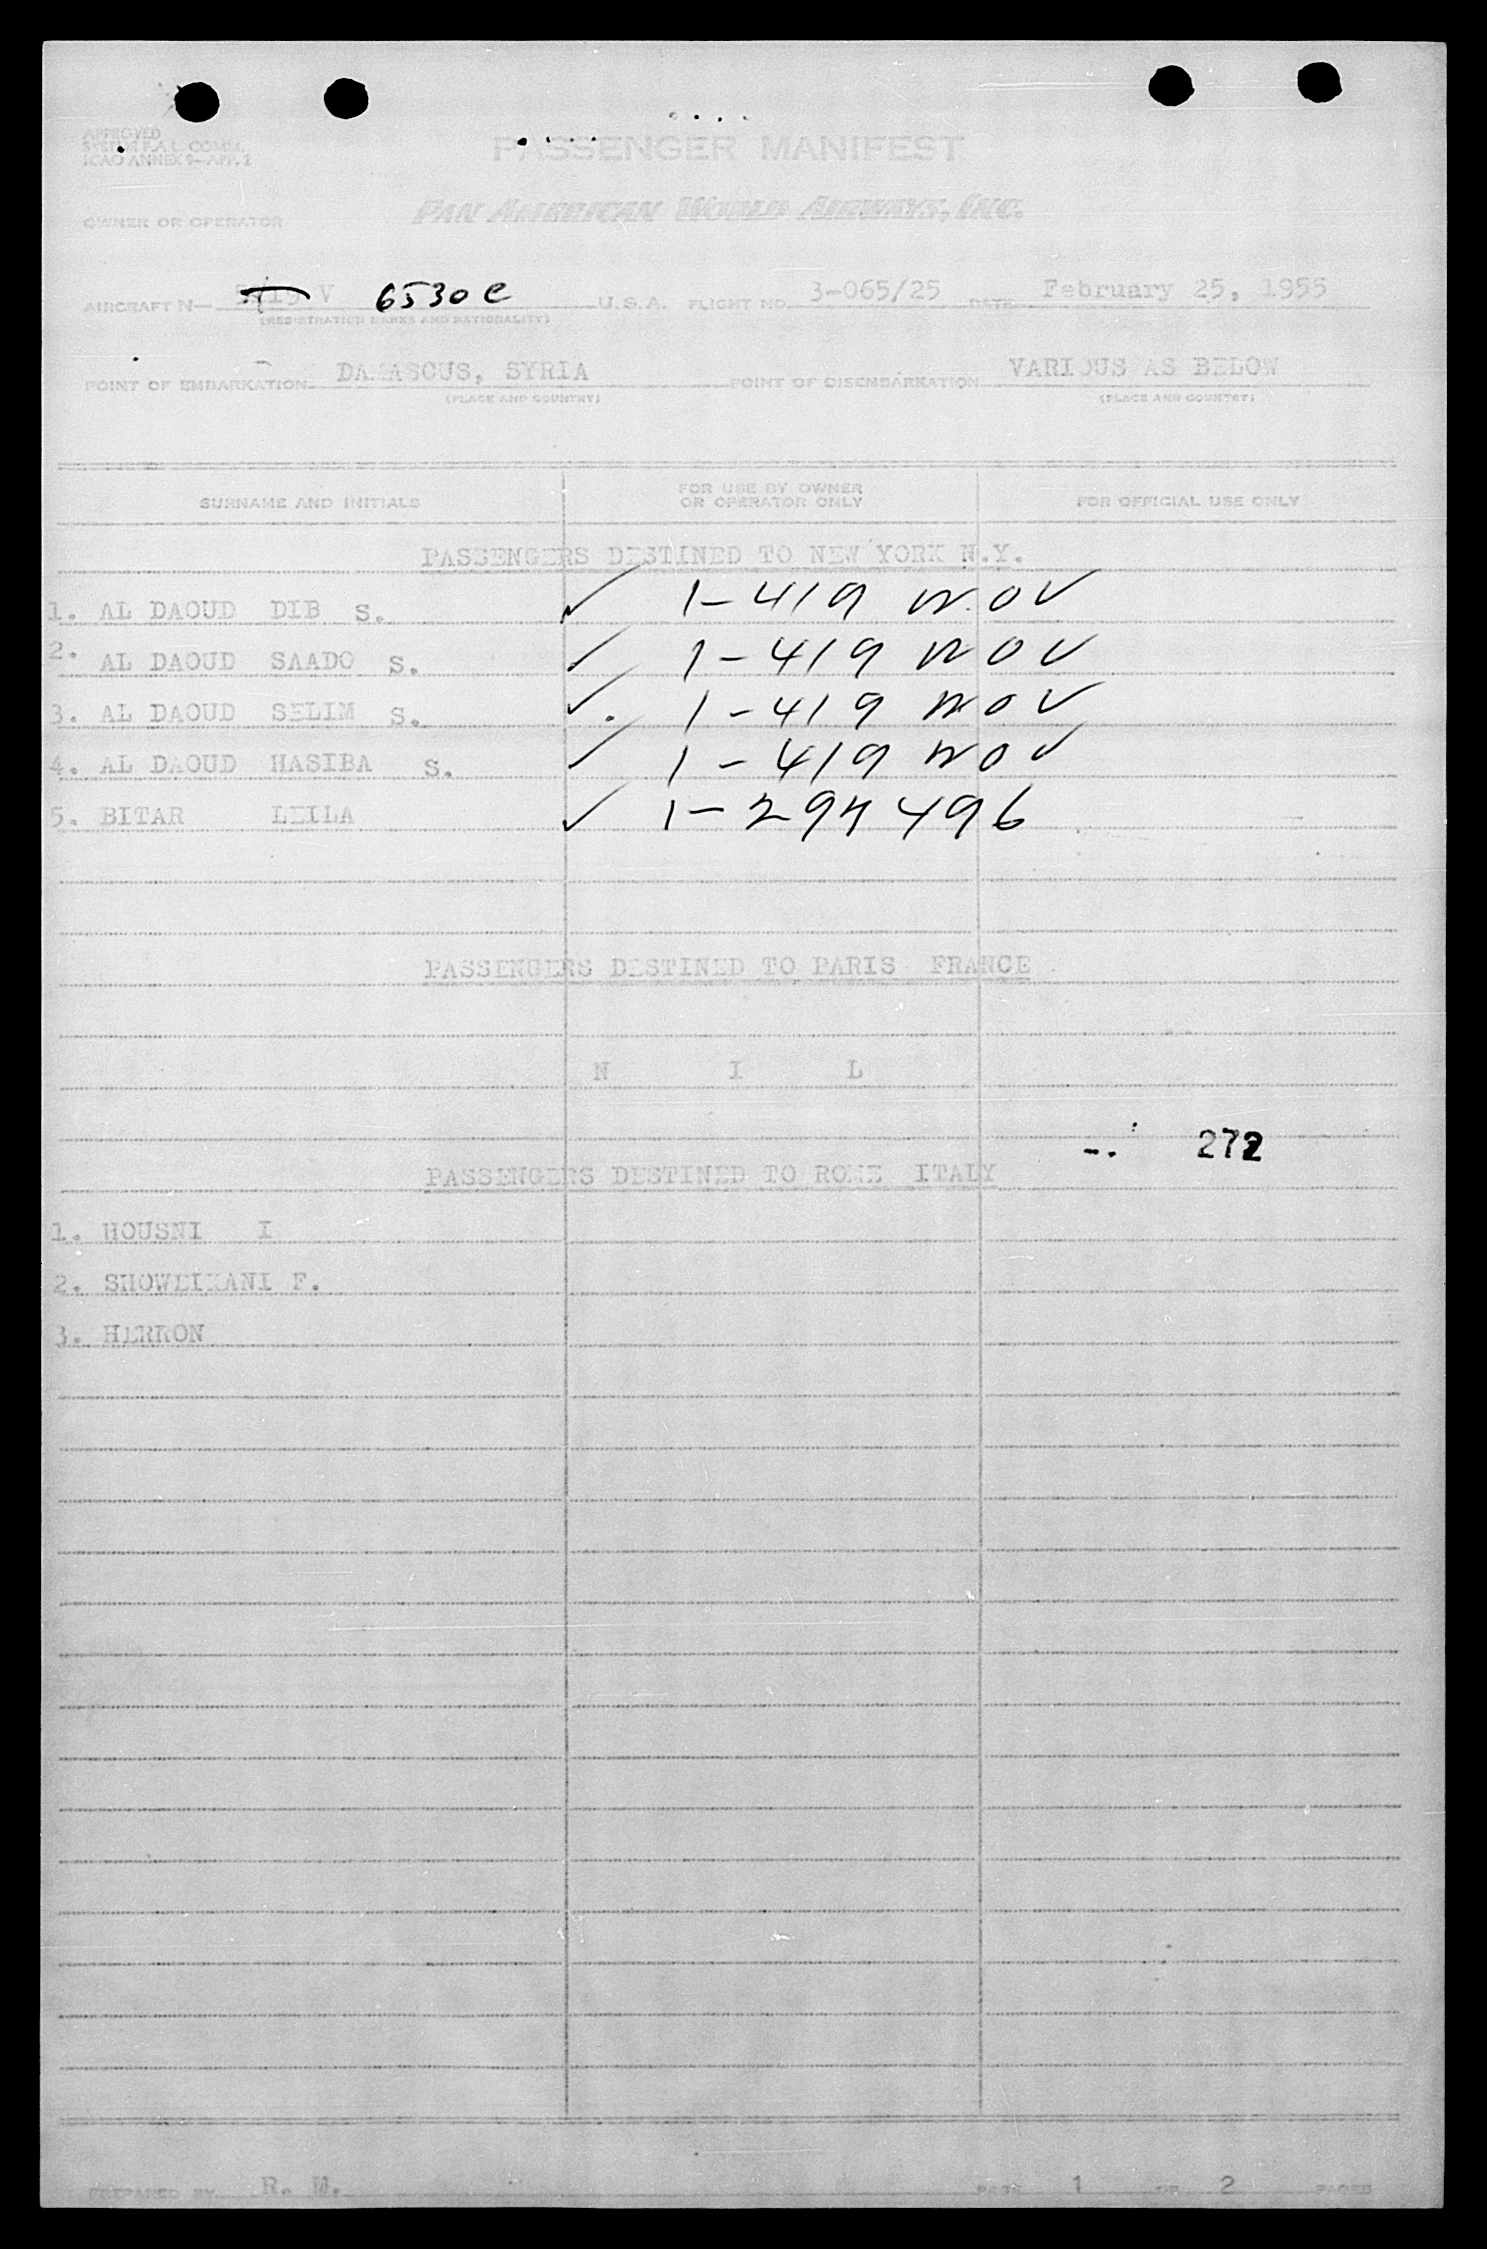 APPROVED
SYSTEM F.A.L. COMM.
ICAO ANNEX 9-APP. 2
PASSENGER MANIFEST
OWNER OR OPERATOR PAN AMERICAN WORLD AIRWAYS, INC.
AIRCRAFT N— V 6530C U.S.A. FLIGHT NO. 3-065/25 DATE February 25, 1955
(REGISTRATION MARKS AND NATIONALITY)
POINT OF EMBARKATION DAMASCUS, SYRIA POINT OF DISEMBARKATION VARIOUS AS BELOW
(PLACE AND COUNTRY) (PLACE AND COUNTRY)
SURNAME AND INITIALS FOR USE BY OWNER OR OPERATOR ONLY FOR OFFICIAL USE ONLY
PASSENGERS DESTINED TO NEW YORK N.Y.
1. AL DAOUD DIB S. ✓ 1-419 NOV
2. AL DAOUD SAADO S. ✓ 1-419 NOV
3. AL DAOUD SELIM S. ✓ 1-419 NOV
4. AL DAOUD HASIBA S. ✓ 1-419 NOV
5. BITAR LEILA ✓ 1-294496
PASSENGERS DESTINED TO PARIS FRANCE
N I L
272
PASSENGERS DESTINED TO ROME ITALY
1. HOUSNI I
2. SHOWEIKANI F.
3. HERRON
PREPARED BY R. M. PAGE 1 OF 2 PAGES